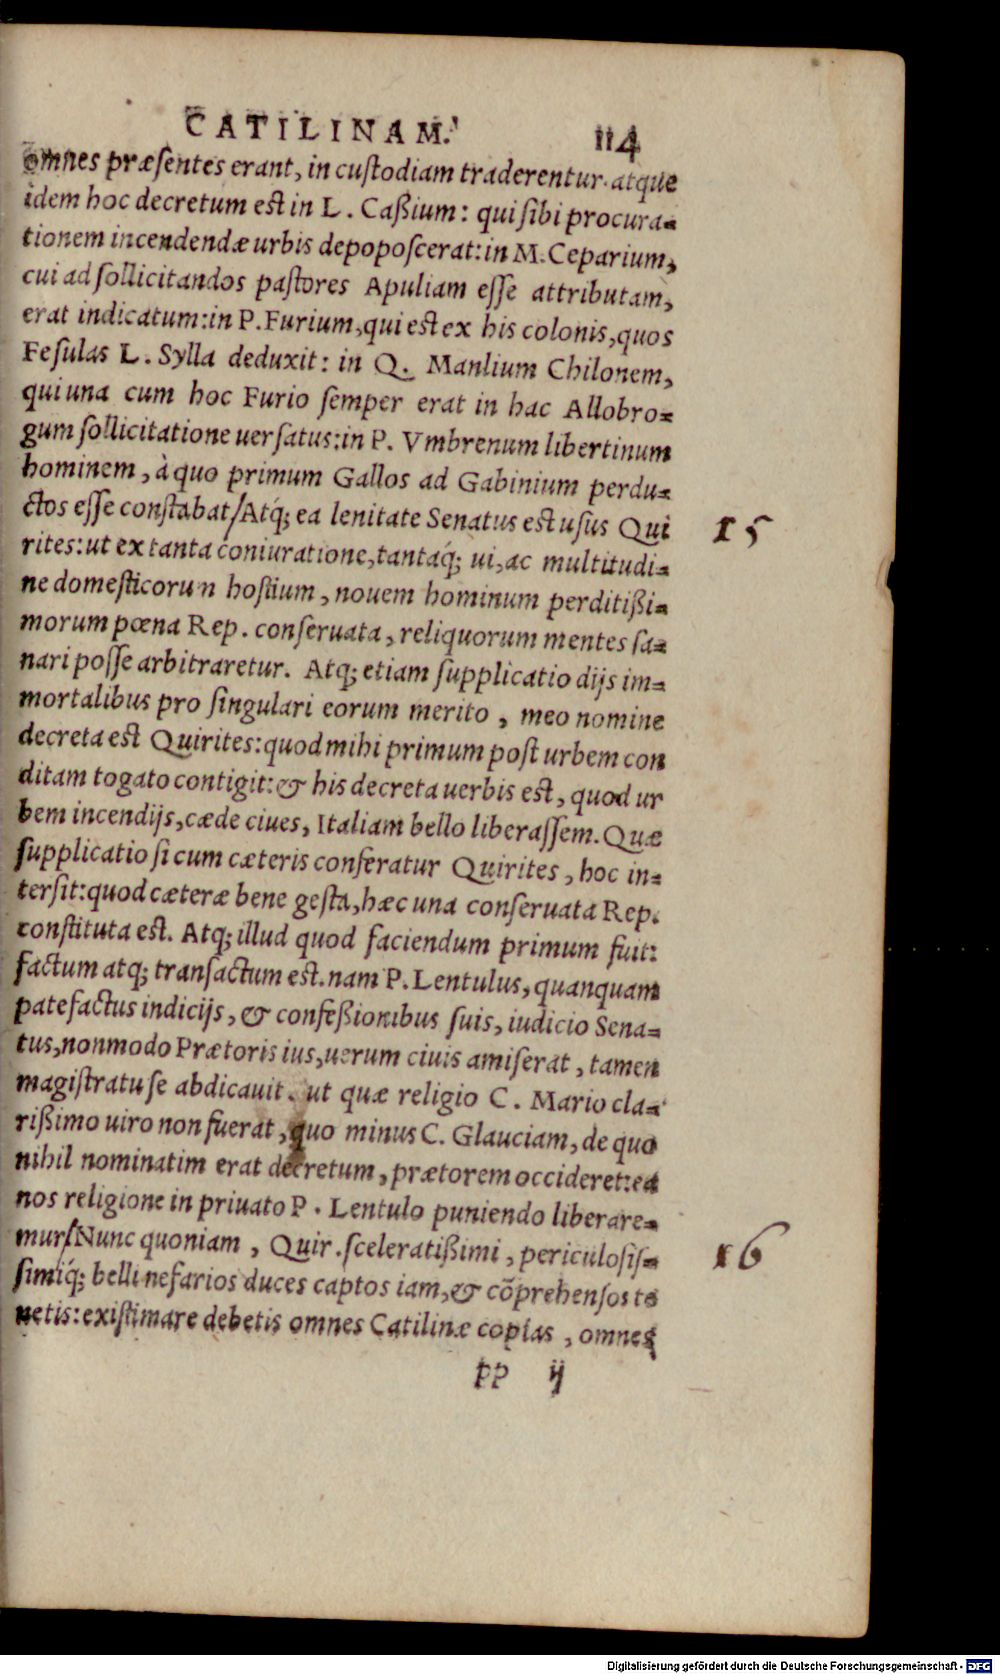 CATILINAM. 114
omnes præsentes erant, in custodiam traderentur. atque
idem hoc decretum est in L. Caßium: qui sibi procura-
tionem incendendæ urbis depoposcerat: in M. Ceparium,
cui ad sollicitandos pastores Apuliam esse attributam,
erat indicatum: in P. Furium, qui est ex his colonis, quos
Fesulas L. Sylla deduxit: in Q. Manlium Chilonem,
qui una cum hoc Furio semper erat in hac Allobro-
gum sollicitatione uersatus: in P. Vmbrenum libertinum
hominem, à quo primum Gallos ad Gabinium perdu-
ctos esse constabat/Atq́; ea lenitate Senatus est usus Qui
15
rites: ut ex tanta coniuratione, tantaq́; ui, ac multitudi-
ne domesticorun hostium, nouem hominum perditißi-
morum pœna Rep. conseruata, reliquorum mentes sa-
nari posse arbitraretur. Atq; etiam supplicatio dijs im-
mortalibus pro singulari eorum merito, meo nomine
decreta est Quirites: quod mihi primum post urbem con
ditam togato contigit: & his decreta uerbis est, quod ur
bem incendijs, cæde ciues, Italiam bello liberassem. Quæ
supplicatio si cum cæteris conferatur Quirites, hoc in-
tersit: quod cæteræ bene gesta, hæc una conseruata Rep.
constituta est. Atq; illud quod faciendum primum fuit:
factum atq; transactum est. nam P. Lentulus, quanquam
patefactus indicijs, & confeßionibus suis, iudicio Sena-
tus, nonmodo Prætoris ius, uerum ciuis amiserat, tamen
magistratu se abdicauit. ut quæ religio C. Mario cla-
rißimo uiro non fuerat, quo minus C. Glauciam, de quo
nihil nominatim erat decretum, prætorem occideret: ea
nos religione in priuato P. Lentulo puniendo liberare-
mur/Nunc quoniam, Quir. sceleratißimi, periculosis-
16
simiq́; belli nefarios duces captos iam, & cõprehensos te
netis: existimare debetis omnes Catilinæ copias, omnes
PP ij
Digitalisierung gefördert durch die Deutsche Forschungsgemeinschaft - DFG